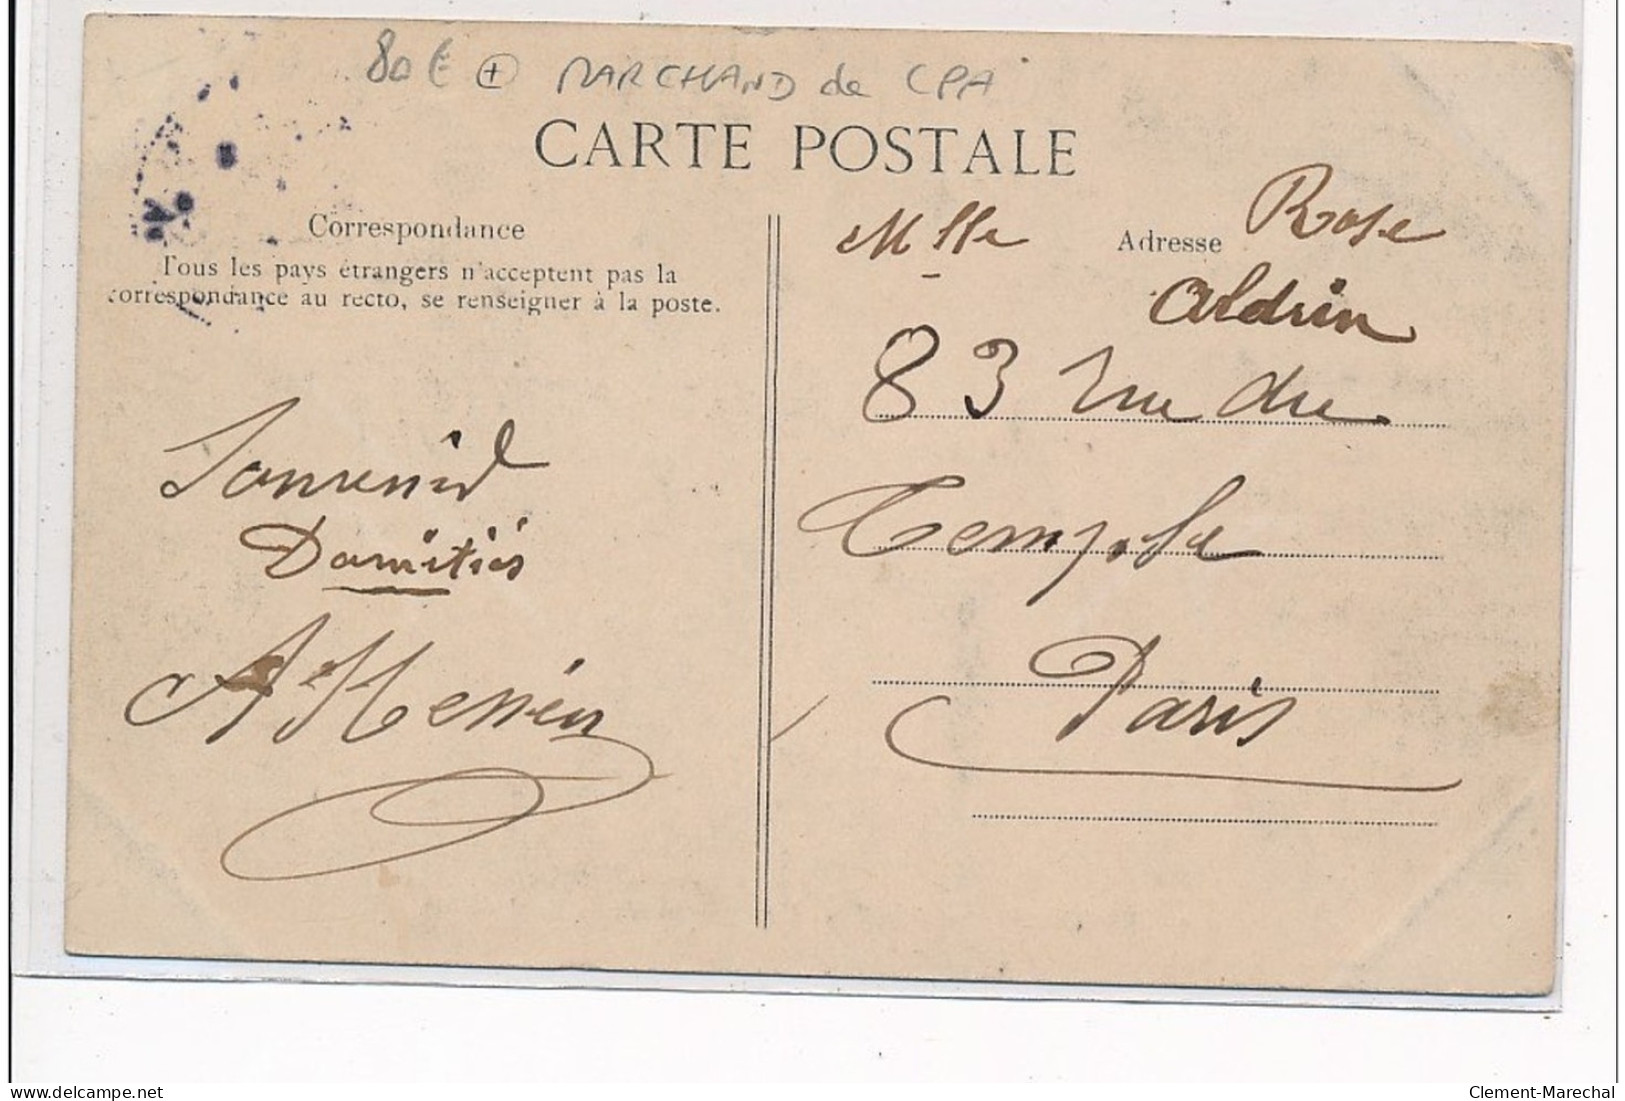 80€ + MARCHAND de CPA
CARTE POSTALE
Correspondance
Tous les pays étrangers n'acceptent pas la
correspondance au recto, se renseigner à la poste.
Souvenir
Damitiés
Adresse
Mlle Rose
Aldrin
83 rue du
Temple
Paris
delcampe.net
Clement-Marechal